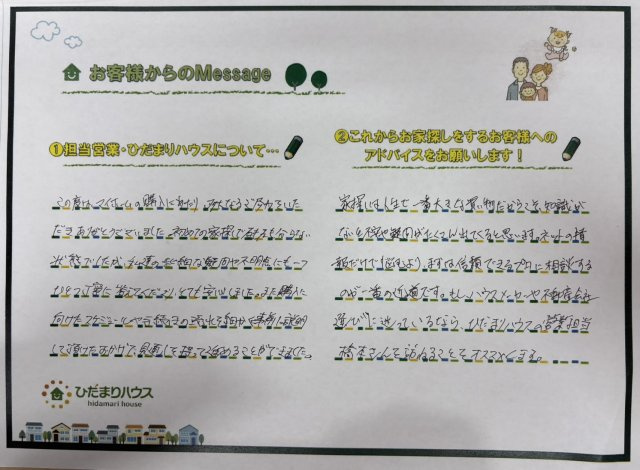 お客様からのMessage
①担当営業・ひだまりハウスについて…
この度はマイホームの購入に当たり、
だきありがとうございました。初めての家探しで右も左も分らない
状態でしたが、私達の些細な疑問や不明点にも一つ
ひとつ丁寧に答えてくださり、とても安心しました。また購入に
向けたスケジュールや手続きの流れも細かく事前に説明
して頂けたおかげで、見通しを持って進めることができました。
②これからお家探しをするお客様への
アドバイスをお願いします！
家探しは人生で一番大きな買い物だからこそ、知識が
ないと不安や疑問がたくさん出てくると思います。ネットの情
報だけで悩むより、まずは信頼できるプロに相談する
のが一番の近道です。もし、ハウスメーカーや不動産会社
選びに迷っているなら、ひだまりハウスの営業担当
橋本さんを訪ねることをオススメします。
ひだまりハウス
hidamari house